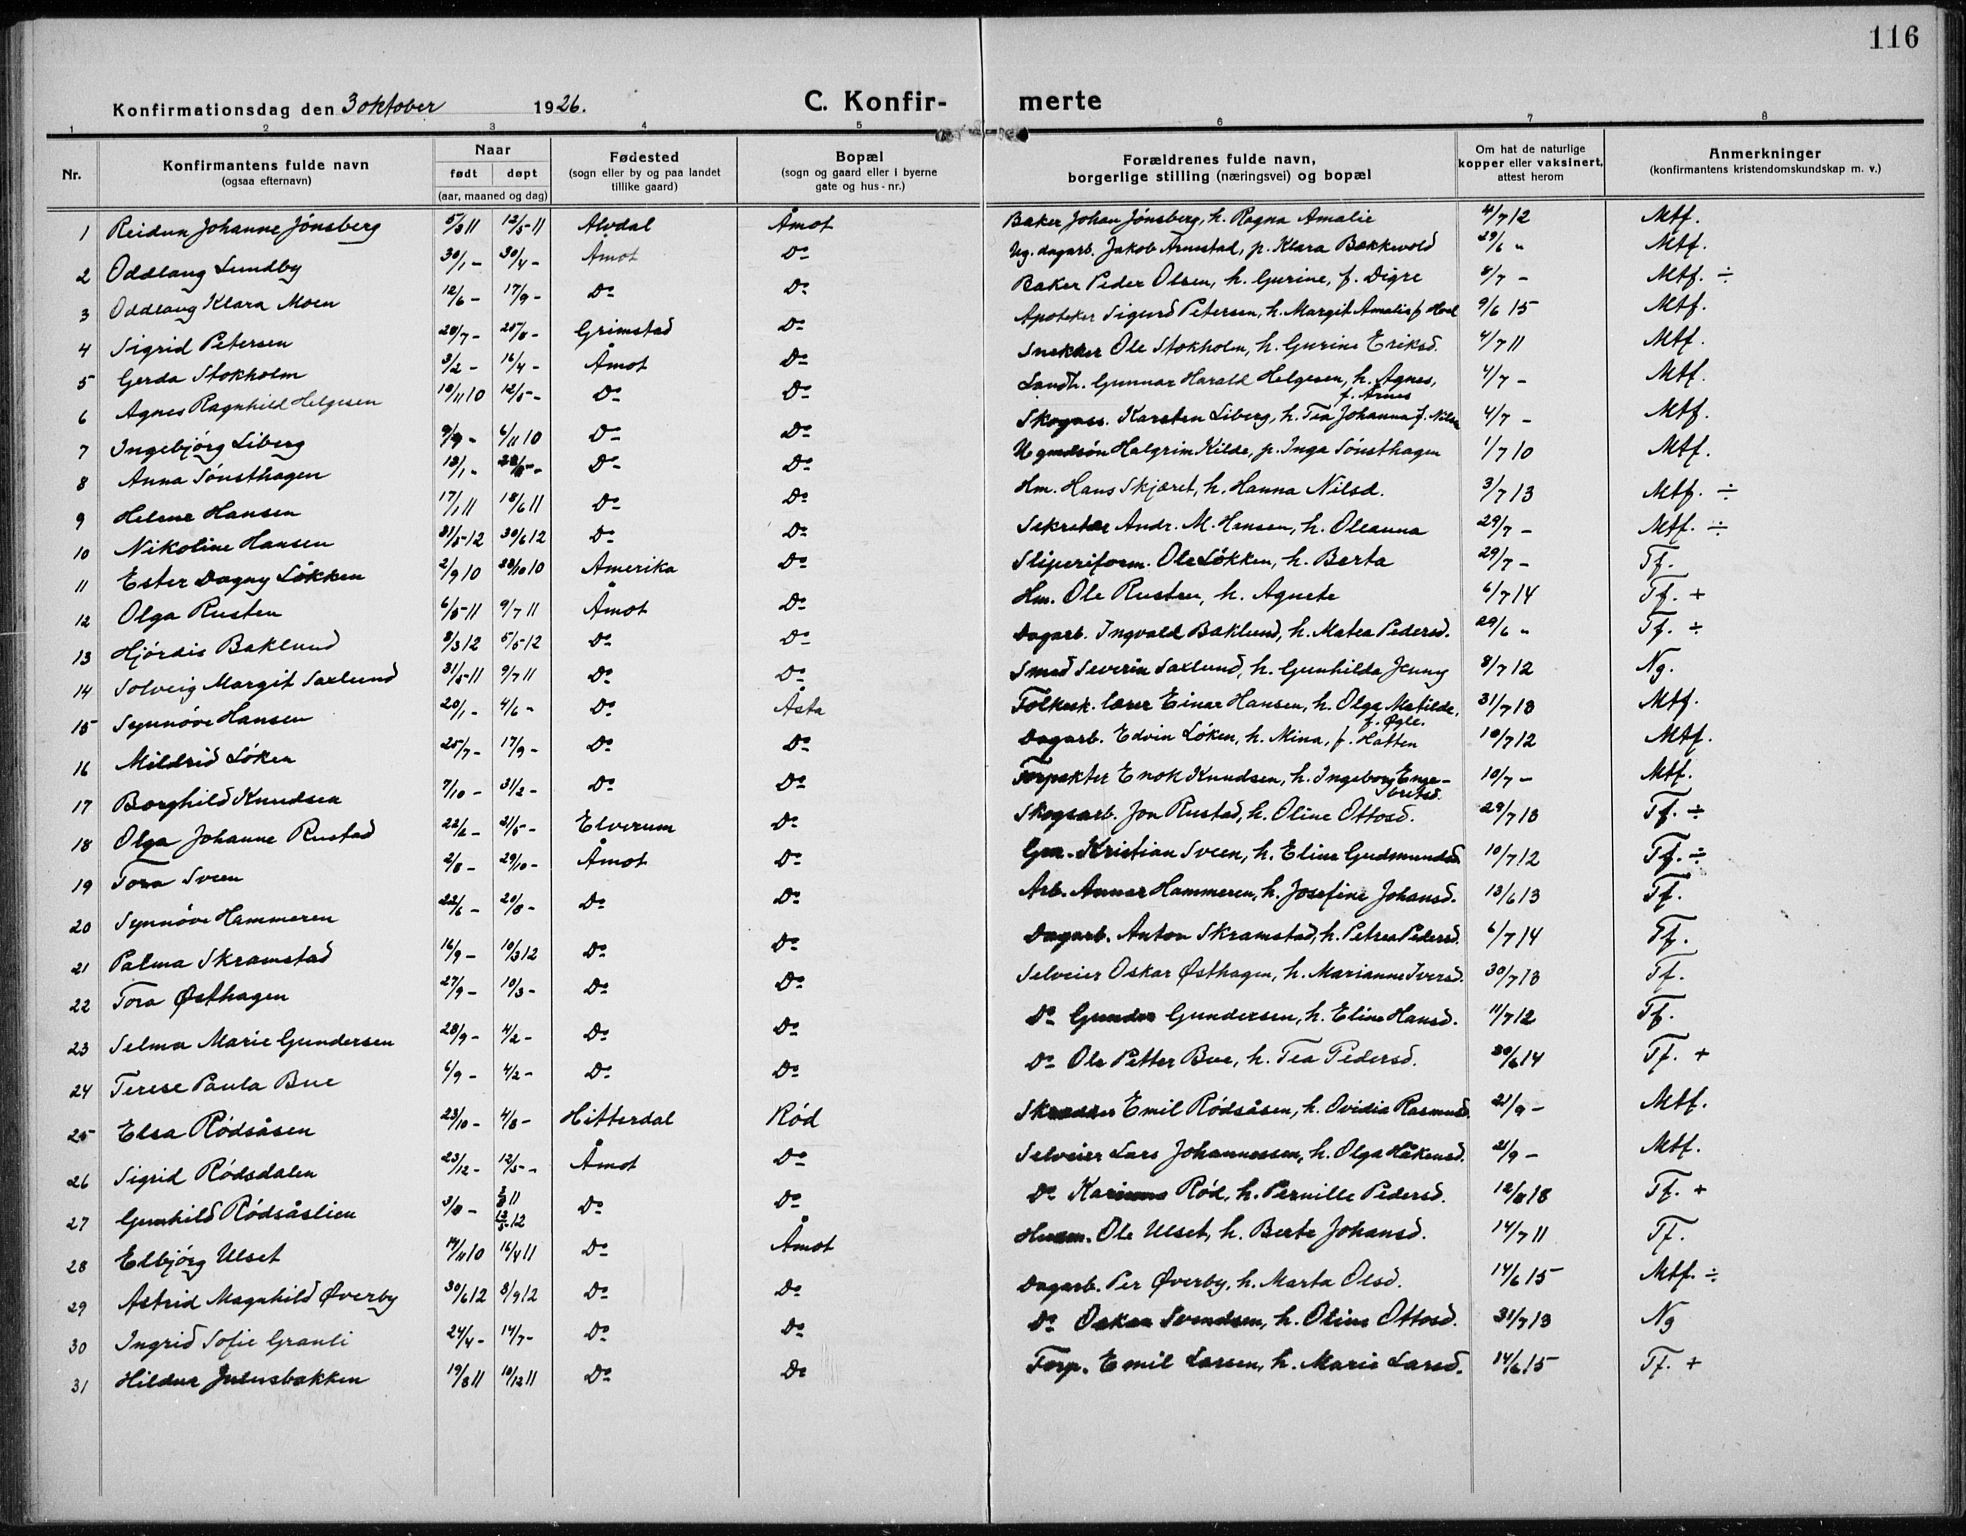 116
Konfirmationsdag den 3 oktober 1926. C. Konfir- merte
1 2 3 4 5 6 7 8
Nr. Konfirmantens fulde navn (ogsaa efternavn) Naar født døpt (aar, maaned og dag) Fødested (sogn eller by og paa landet tillike gaard) Bopæl (sogn og gaard eller i byerne gate og hus-nr.) Forældrenes fulde navn, borgerlige stilling (næringsvei) og bopæl Om hat de naturlige kopper eller vaksinert, attest herom Anmerkninger (konfirmantens kristendomskundskap m. v.)
1 Reidun Johanne Jönsberg 5/3 11 12/5-11 Alvdal Åmot Baker Johan Jönsberg, h. Ragna Amalie 4/7 12 Mtf.
2 Oddlaug Lundby 30/1 - 30/4 - Åmot Do Ug. dagarb. Jakob Arnestad, p. Klara Bækkevold 29/6 " Mtf.
3 Oddlaug Klara Moen 12/6 - 17/9 - Do Do Baker Peder Olsen, h. Gurine, f. Digre 8/7 - Mtf. ÷
4 Sigrid Petersen 20/7 - 25/8 - Grimstad Do Apoteker Sigurd Petersen, h. Margit Amalie f. 9/6 15 Mtf.
5 Gerda Stokholm 3/2 - 16/4 - Åmot Do Snekker Ole Stokholm, h. Gurine Eriksd. 4/7 11 Mtf.
6 Agnes Ragnhild Helgesen 10/11 10 12/5 - Do Do Landh. Gunnar Harald Helgesen, h. Agnes, f. Årnes 4/7 - Mtf.
7 Ingebjörg Liberg 9/9 - 6/11 10 Do Do Skogass. Karsten Liberg, h. Tea Johanna f. Nilsen 4/7 - Mtf.
8 Anna Sönsthagen 13/1 - Do Do Ug gmdsön Halgrim Kilde, p. Inga Sönsthagen 1/7 10 Mtf.
9 Helene Hansen 17/1 11 18/6 11 Do Do Hm. Hans Skjæret, h. Hanna Nilsd. 3/7 13 Mtf. ÷
10 Nikoline Hansen 31/5-12 30/6 12 Do Do Sekretær Andr. M. Hansen, h. Oleanna 29/7 - Mtf. ÷
11 Ester Dagny Lökken 2/9 10 28/10 10 Amerika Do Sliperiform. Ole Lökken, h. Berta 29/7 - Tf.
12 Olga Rusten 6/5-11 9/7 11 Åmot Do Hm. Ole Rusten, h. Agnete 6/7 14 Tf. +
13 Hjördis Baklund 8/3 12 5/5-12 Do Do Dagarb. Ingvald Baklund, h. Matea Pedersd. 29/6 " Tf. ÷
14 Solveig Margit Saxlund 31/5-11 9/7 11 Do Do Smed Severin Saxlund, h. Gunhilda Jenny 8/7 12 Ng.
15 Synnöve Hansen 20/1 - 4/6 - Do Åsta Folkesk. lærer Einar Hansen, h. Olga Matilde, f. Øgle. 31/7 13 Mtf.
16 Mildrid Löken 25/7 - 17/9 - Do Do Dagarb. Edvin Löken, h. Mina, f. Hatten 10/7 12 Mtf.
17 Borghild Knudsen 7/10 - 31/2 - Do Do Forpakter Enok Knudsen, h. Ingeborg Engebretsd. 10/7 - Mtf.
18 Olga Johanne Rustad 22/2 - 21/5 - Elverum Do Skogsarb. Jon Rustad, h. Oline Ottosd. 29/7 13 Tf. ÷
19 Tora Sveen 2/8 - 29/10 - Åmot Do Gm. Kristian Sveen, h. Eline Gudmundsd. 10/7 12 Tf. ÷
20 Synnöve Hammeren 22/6 - 20/8 - Do Do Arb. Annar Hammeren, h. Josefine Johansd. 13/6 13 Tf.
21 Palma Skramstad 16/9 - 10/3 12 Do Do Dagarb. Anton Skramstad, h. Petrea Pedersd. 6/7 14 Tf.
22 Tora Østhagen 27/9 - 10/3 - Do Do Selveier Oskar Østhagen, h. Marianne Iversd. 30/7 13 Tf.
23 Selma Marie Gundersen 28/9 - 4/2 - Do Do Do Gunder Gundersen, h. Eline Hansd. 11/7 12 Tf.
24 Terese Paula Bue 6/9 - 4/2 - Do Do Do Ole Petter Bue, h. Tea Pedersd. 30/6 14 Tf. +
25 Elsa Rödsåsen 23/10 - 4/8 - Hitterdal Röd Skrædder Emil Rödsåsen, h. Ovidia Rasmusd. 21/9 - Mtf.
26 Sigrid Rödsdalen 23/12 - 12/5 - Åmot Do Selveier Lars Johannessen, h. Olga Håkensd. 21/9 - Mtf.
27 Gunhild Rödsåslien 3/8 - 11 12 Do Do Do Röd, h. Pernille Pedersd. 12/8 18 Tf. +
28 Elbjörg Ulset 14/11 10 16/4 11 Do Åmot Husm. Ole Ulset, h. Berte Johansd. 14/7 11 Tf.
29 Astrid Magnhild Øverby 30/6 12 8/9 12 Do Do Dagarb. Per Øverby, h. Marta Olsd. 14/6 15 Mtf. ÷
30 Ingrid Sofie Granli 24/4 - 14/7 - Do Do Do Oskar Svendsen, h. Oline Ottosd. 31/7 13 Ng
31 Hildur Juliusbakken 19/8 11 10/12 11 Do Do Forp. Emil Larsen, h. Marie Larsd. 14/6 15 Tf. +